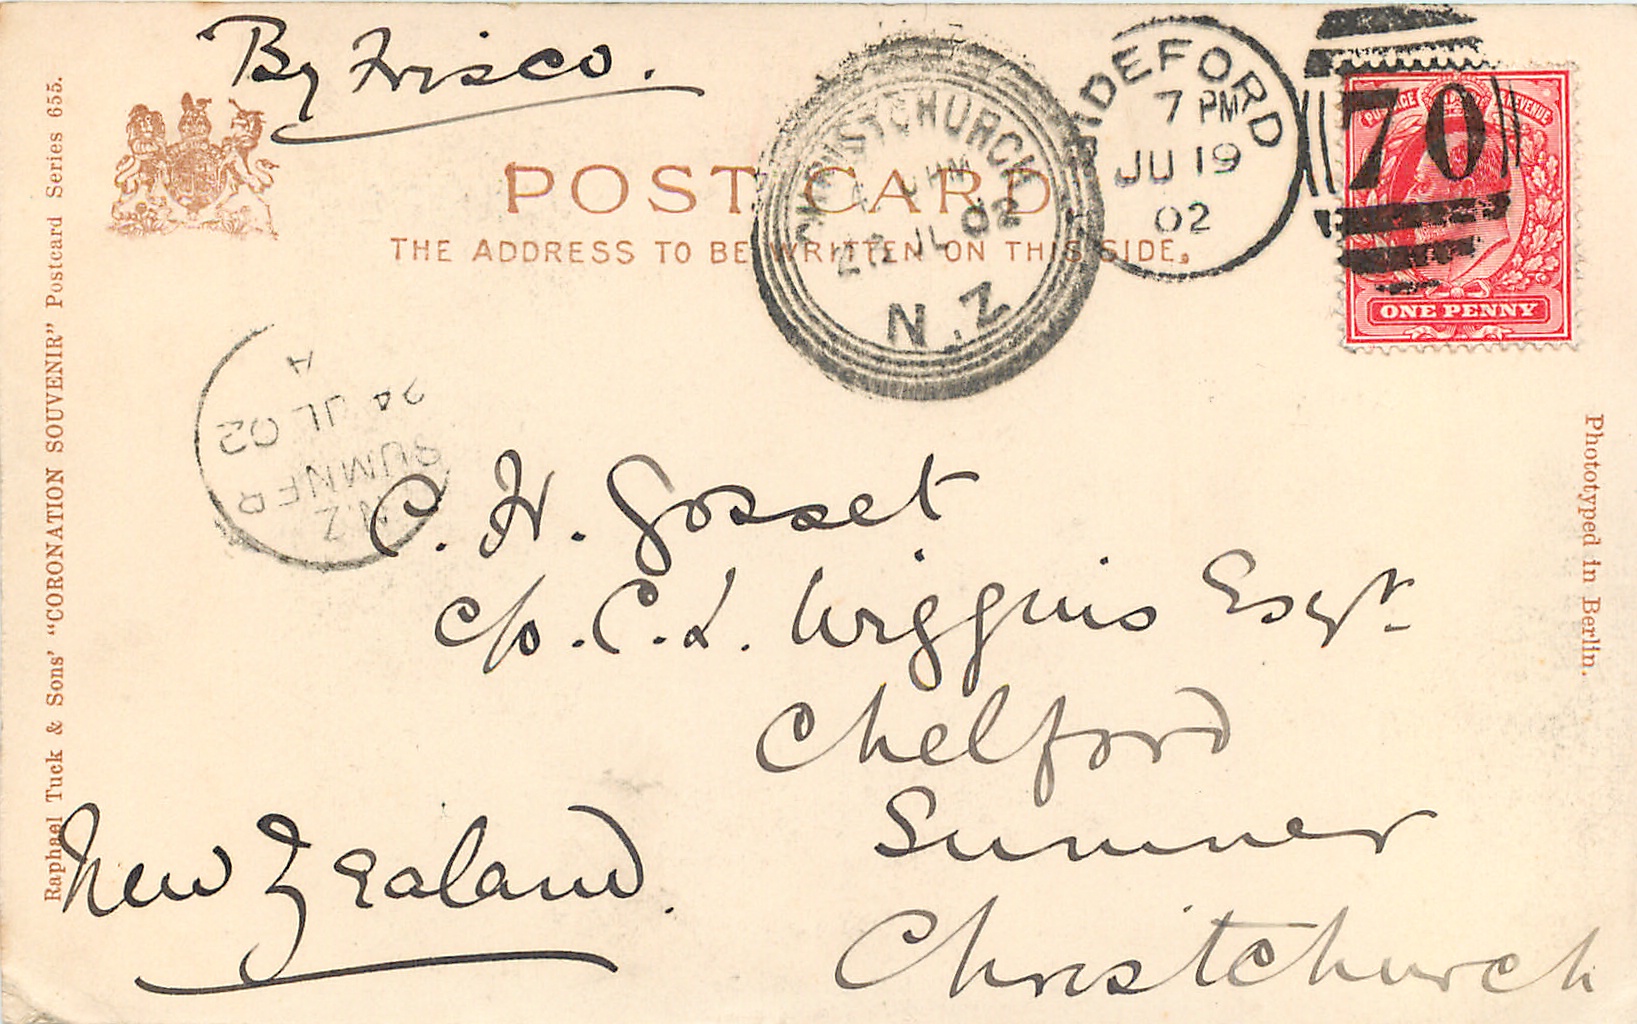 By Frisco.
POST CARD
THE ADDRESS TO BE WRITTEN ON THIS SIDE.
CHRISTCHURCH
JL 02
N.Z
BIDEFORD
7 PM
JU 19
02
70
POSTAGE REVENUE
ONE PENNY
A
24 JL 02
SUMNER
N.Z
C. H. Gosset
c/o. C. L. Wiggins Esqr.
Chelford
Sumner
Christchurch
New Zealand.
Raphael Tuck & Sons' "CORONATION SOUVENIR" Postcard Series 655.
Phototyped in Berlin.